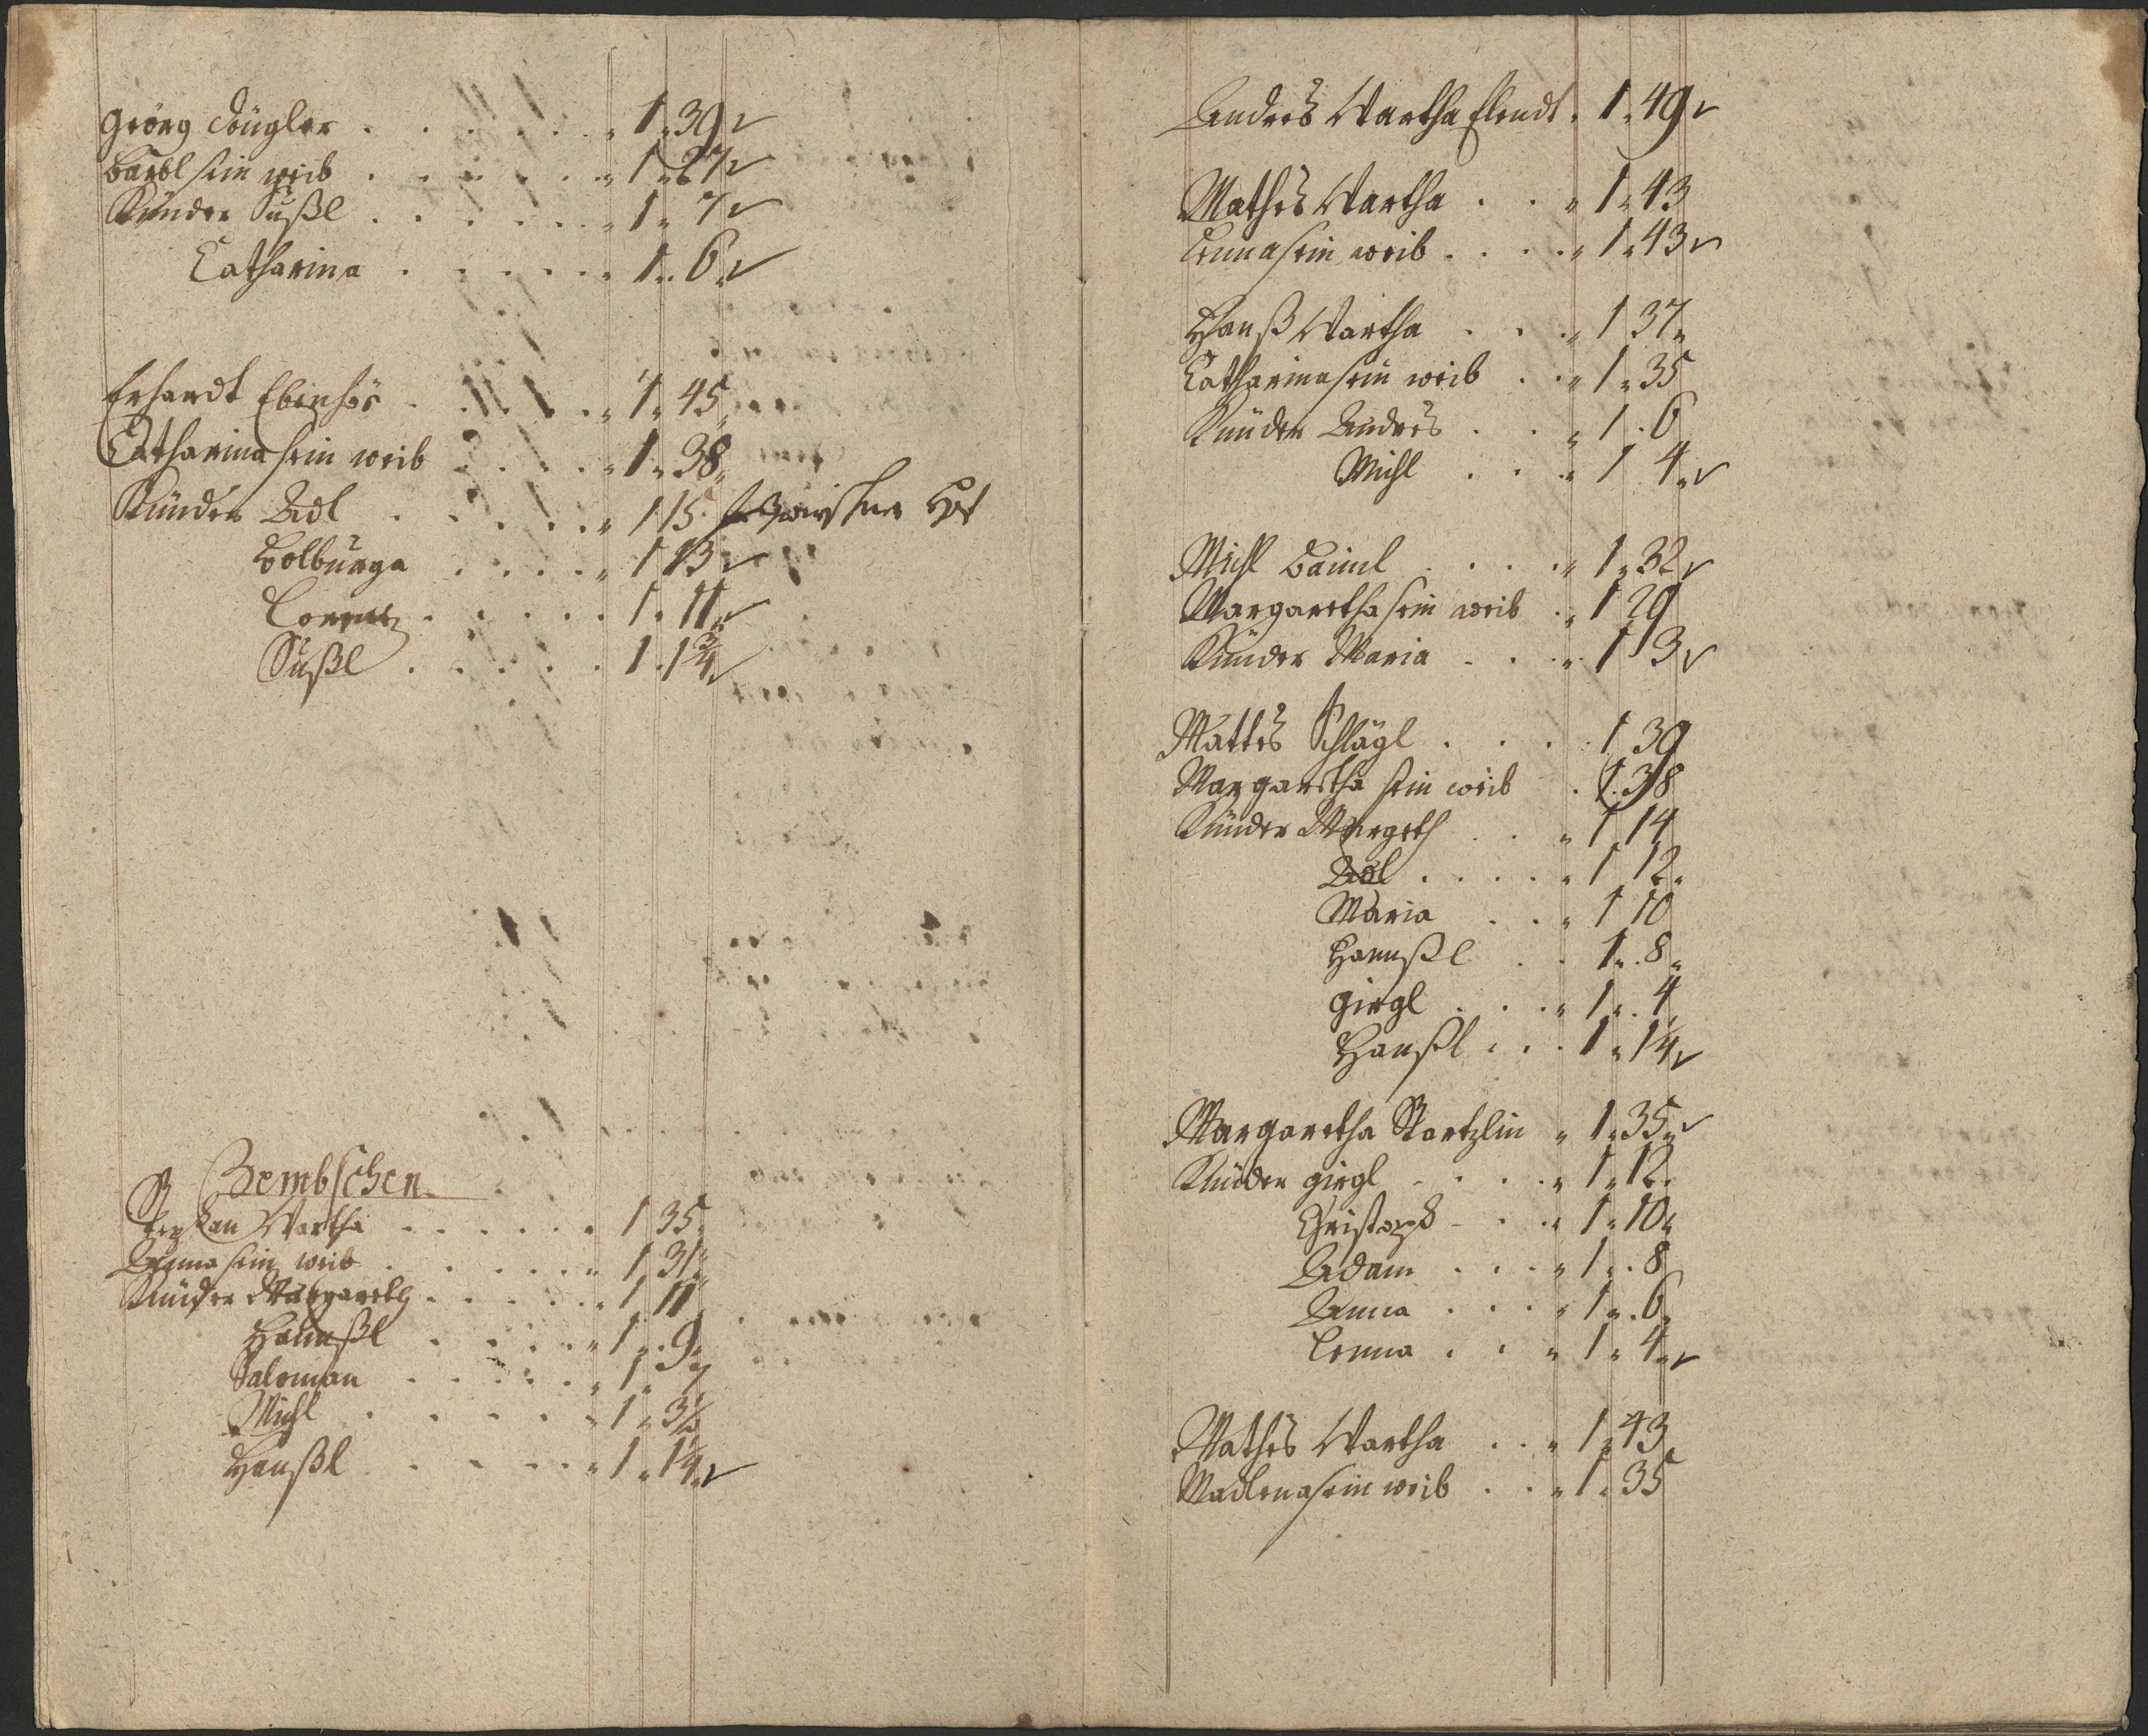 Georg Düngler . . . . . . 1 . 39
Barbl sein weib . . . . . . 1 . 27
Künder Sußl . . . . . . 1 . 7
Catharina . . . . . . 1 . 6
Erhardt Ebenhör . . . . . 1 . 45
Catharina sein weib . . . . 1 . 38
Künder Adl . . . . . 1 15
Wolburga . . . . . 1 13
Lorentz . . . . . 1 . 11
Sußl . . . . . 1 . 1 3/4
Zembschen
Stephan Wartha . . . . . . 1 35
Anna sein weib . . . . . . 1 31
Künder Margareth . . . . . 1 11
Hannßl . . . . . 1 . 9
Saloman . . . . . 1 . 7
Michl . . . . . 1 . 3 1/2
Hanßl . . . . . 1 . 1/4
Andres Wartha Elendt . 1 . 49
Mathes Wartha . . . 1 . 43
Lenna sein weib . . . . 1 . 43
Hanß Wartha . . . 1 37
Catharina sein weib . . 1 . 35
Künder Andres . . . 1 . 6
Michl . . . 1 4
Michl Baiml . . . . 1 . 32
Margaretha sein weib . . 1 29
Künder Maria . . . 1 3
Mattes Schlägl . . . . 1 39
Margaretha sein weib . 1 . 38
Künder Margeth . . . 1 14
Adl . . . . . 1 12
Maria . . . 1 10
Hannßl . . 1 . 8
Girgl . . . . 1 . 4
Hanßl . . . 1 . 1/4
Margaretha Startzlin . 1 . 35
Künder Girgl . . . . 1 . 12
Christoph . . . 1 . 10
Adam . . . . 1 . 8
Anna . . . . 1 . 6
Lenna . . . 1 . 4
Mathes Wartha . . . 1 . 43
Madlena sein weib . . . 1 . 35